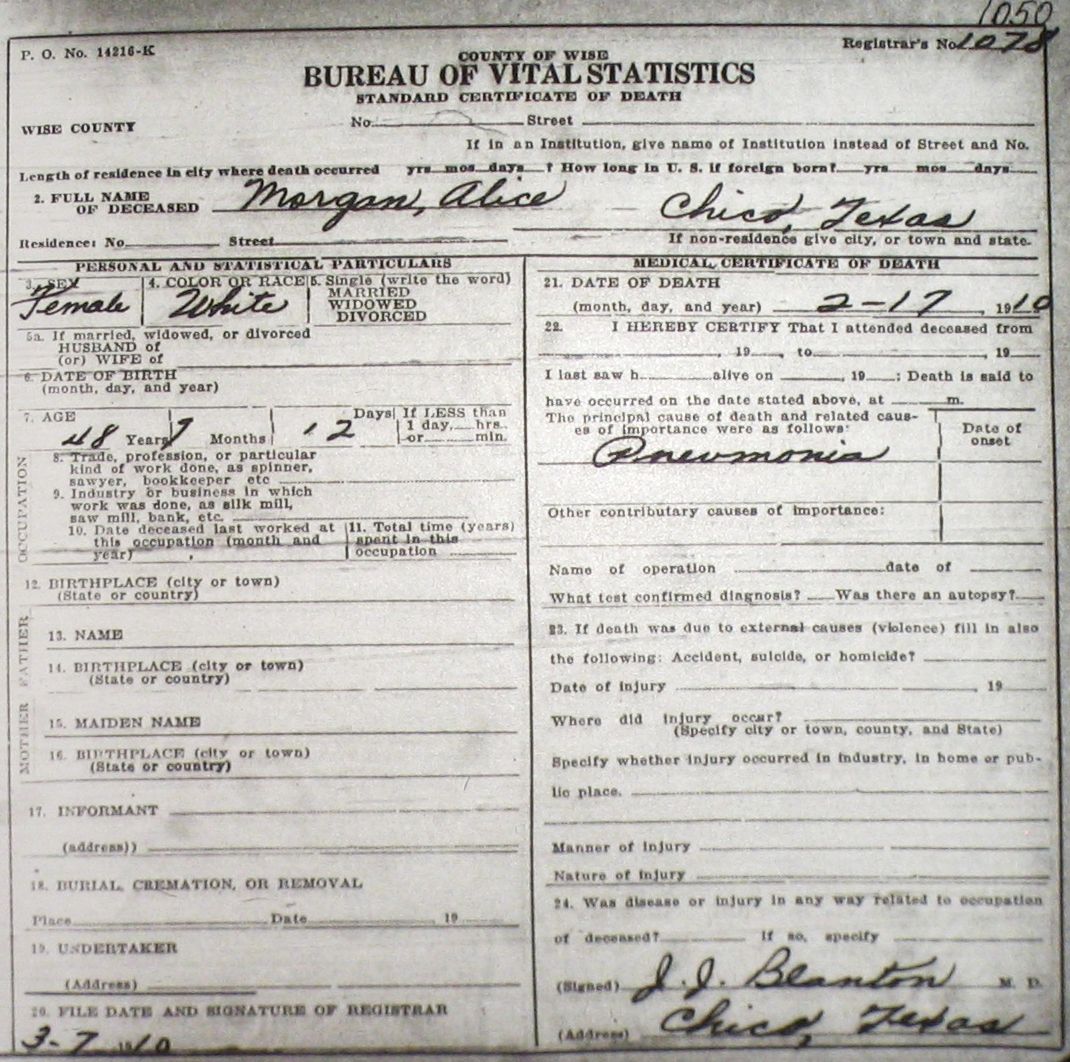 1050
P. O. No. 14216-K
Registrar's No. 1078
COUNTY OF WISE
BUREAU OF VITAL STATISTICS
STANDARD CERTIFICATE OF DEATH
WISE COUNTY
No. Street
If in an Institution, give name of Institution instead of Street and No.
Length of residence in city where death occurred yrs mos days ? How long in U. S. if foreign born? yrs mos days
2. FULL NAME OF DECEASED Morgan, Alice Chico, Texas
Residence: No. Street If non-residence give city, or town and state.
PERSONAL AND STATISTICAL PARTICULARS
3. SEX Female
4. COLOR OR RACE White
5. Single (write the word)
MARRIED
WIDOWED
DIVORCED
5a. If married, widowed, or divorced
HUSBAND of
(or) WIFE of
6. DATE OF BIRTH
(month, day, and year)
7. AGE 48 Years 7 Months 12 Days
If LESS than
1 day, hrs.
or min.
OCCUPATION
8. Trade, profession, or particular
kind of work done, as spinner,
sawyer, bookkeeper etc
9. Industry or business in which
work was done, as silk mill,
saw mill, bank, etc.
10. Date deceased last worked at
this occupation (month and
year)
11. Total time (years)
spent in this
occupation
12. BIRTHPLACE (city or town)
(State or country)
FATHER
13. NAME
14. BIRTHPLACE (city or town)
(State or country)
MOTHER
15. MAIDEN NAME
16. BIRTHPLACE (city or town)
(State or country)
17. INFORMANT
(address))
18. BURIAL, CREMATION, OR REMOVAL
Place Date 19
19. UNDERTAKER
(Address)
20. FILE DATE AND SIGNATURE OF REGISTRAR
3-7 1910
MEDICAL CERTIFICATE OF DEATH
21. DATE OF DEATH
(month, day, and year) 2-17, 1910
22. I HEREBY CERTIFY That I attended deceased from
, 19 , to , 19
I last saw h alive on , 19 ; Death is said to
have occurred on the date stated above, at m.
The principal cause of death and related caus-
es of importance were as follows:
Date of
onset
Pneumonia
Other contributary causes of importance:
Name of operation date of
What test confirmed diagnosis? Was there an autopsy?
23. If death was due to external causes (violence) fill in also
the following: Accident, suicide, or homicide?
Date of injury , 19
Where did injury occur?
(Specify city or town, county, and State)
Specify whether injury occurred in industry, in home or pub-
lic place.
Manner of injury
Nature of injury
24. Was disease or injury in any way related to occupation
of deceased? If so, specify
(Signed) J. J. Blanton M. D.
(Address) Chico, Texas